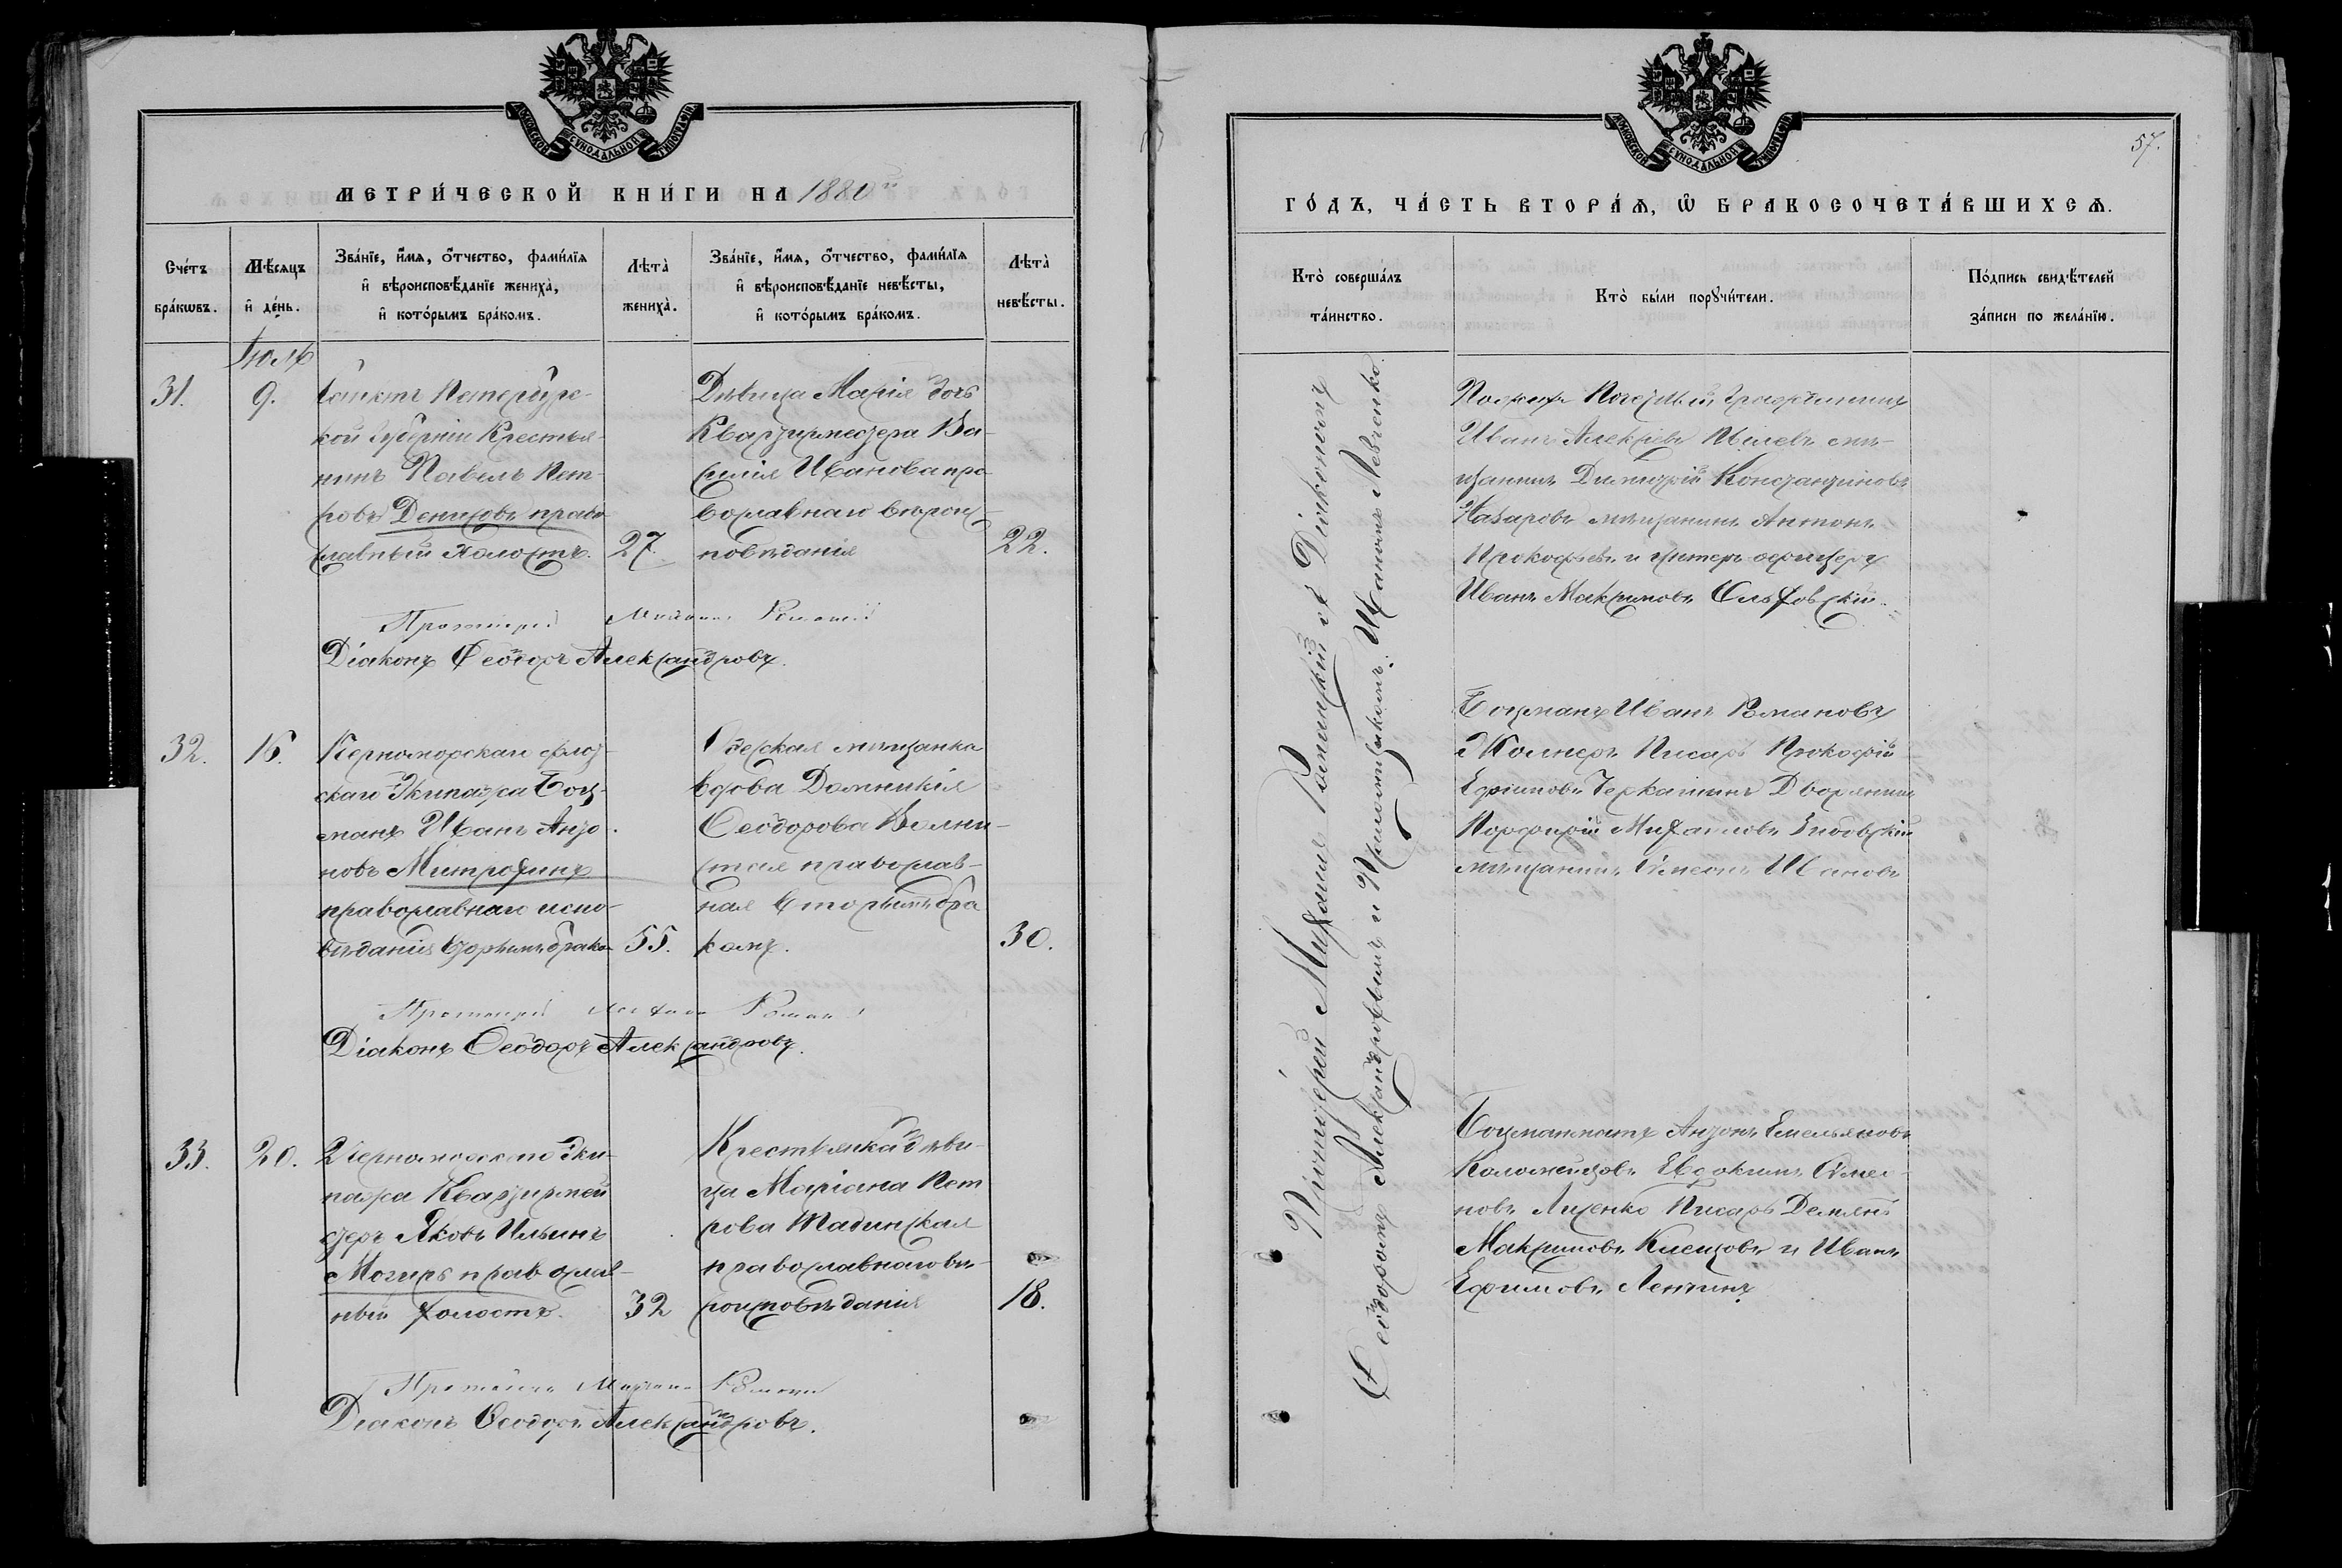 МОСКОВСКОЙ СѴНОДАЛЬНОЙ ТИПОГРАФІИ
МЕТРИ́ЧЕСКОЙ КНИ́ГИ НА 1880й
Сче́тъ бра́кѡвъ.
Мѣ́сяцъ и҆ де́нь.
Зва́нїе, и҆́мѧ, ѻ҆́тчество, фами́лїѧ и҆ вѣроисповѣ́данїе жениха̀, и҆ кото́рымъ бра́комъ.
Лѣта̀ жениха̀.
Зва́нїе, и҆́мѧ, ѻ҆́тчество, фами́лїѧ и҆ вѣроисповѣ́данїе невѣ́сты, и҆ кото́рымъ бра́комъ.
Лѣта̀ невѣ́сты.
Іюль
31.
9.
Санктъ Петербургс-
кой Губерніи Крестья-
нинъ Павелъ Пет-
ровъ Денисовъ право-
славный холостъ.
27.
Дѣвица Марія дочь
Квартирместера Ва-
силія Иванова пра-
вославнаго вѣроис-
повѣданія
22.
Протоіерей Михаилъ
Діаконъ Ѳеодоръ Александровъ.
32.
16.
Черноморскаго флот-
скаго Экипажа Боц-
манъ Иванъ Анто-
новъ
православнаго испо-
вѣданія вторымъ брако-
55.
Одесская мѣщанка
вдова Домникія
Ѳеодорова
православ-
ная вторымъ бра
комъ.
30.
Протоіерей Михаилъ
Діаконъ Ѳеодоръ Александровъ.
33.
20.
2 Черноморскаго Эки-
пажа Квартирмей
стеръ Яковъ Ильинъ
православ-
ный холостъ.
32
Крестьянка дѣви-
ца Маріана Пет
рова
православнаго вѣ-
роисповѣданія
18.
Протоіерей Михаилъ
Діаконъ Ѳеодоръ Александровъ.
МОСКОВСКОЙ СѴНОДАЛЬНОЙ ТИПОГРАФІИ
57.
ГО́ДЪ, ЧА́СТЬ ВТОРА́Ѧ, Ѡ҆ БРАКОСОЧЕТА́ВШИХСѦ.
Кто̀ соверша́лъ та́инство.
Кто̀ бы́ли порꙋчи́тели.
По́дпись свидѣ́телей за́писи по жела́нїю.
Протоіерей Михаилъ съ Діакономъ
Ѳеодоромъ Александровымъ и Псаломщикомъ Иваномъ Левченко.
Почетный Гражданинъ
Иванъ Алексѣевъ мѣ-
щанинъ Димитрій Константиновъ
Назаровъ мѣщанинъ Антонъ
Прокофьевъ и унтеръ офицеръ
Иванъ Максимовъ
Боцманъ Иванъ Романовъ
Писарь Прокофій
Ефимовъ Черкашинъ Дворянинъ
Порфирій Михаиловъ
мѣщанинъ Симеонъ Ивановъ
Боцманматъ Антонъ Емельяновъ
Коломейцовъ Евдокимъ Симео-
новъ Лиценко Писарь Демьянъ
Максимовъ и Иванъ
Ефимовъ